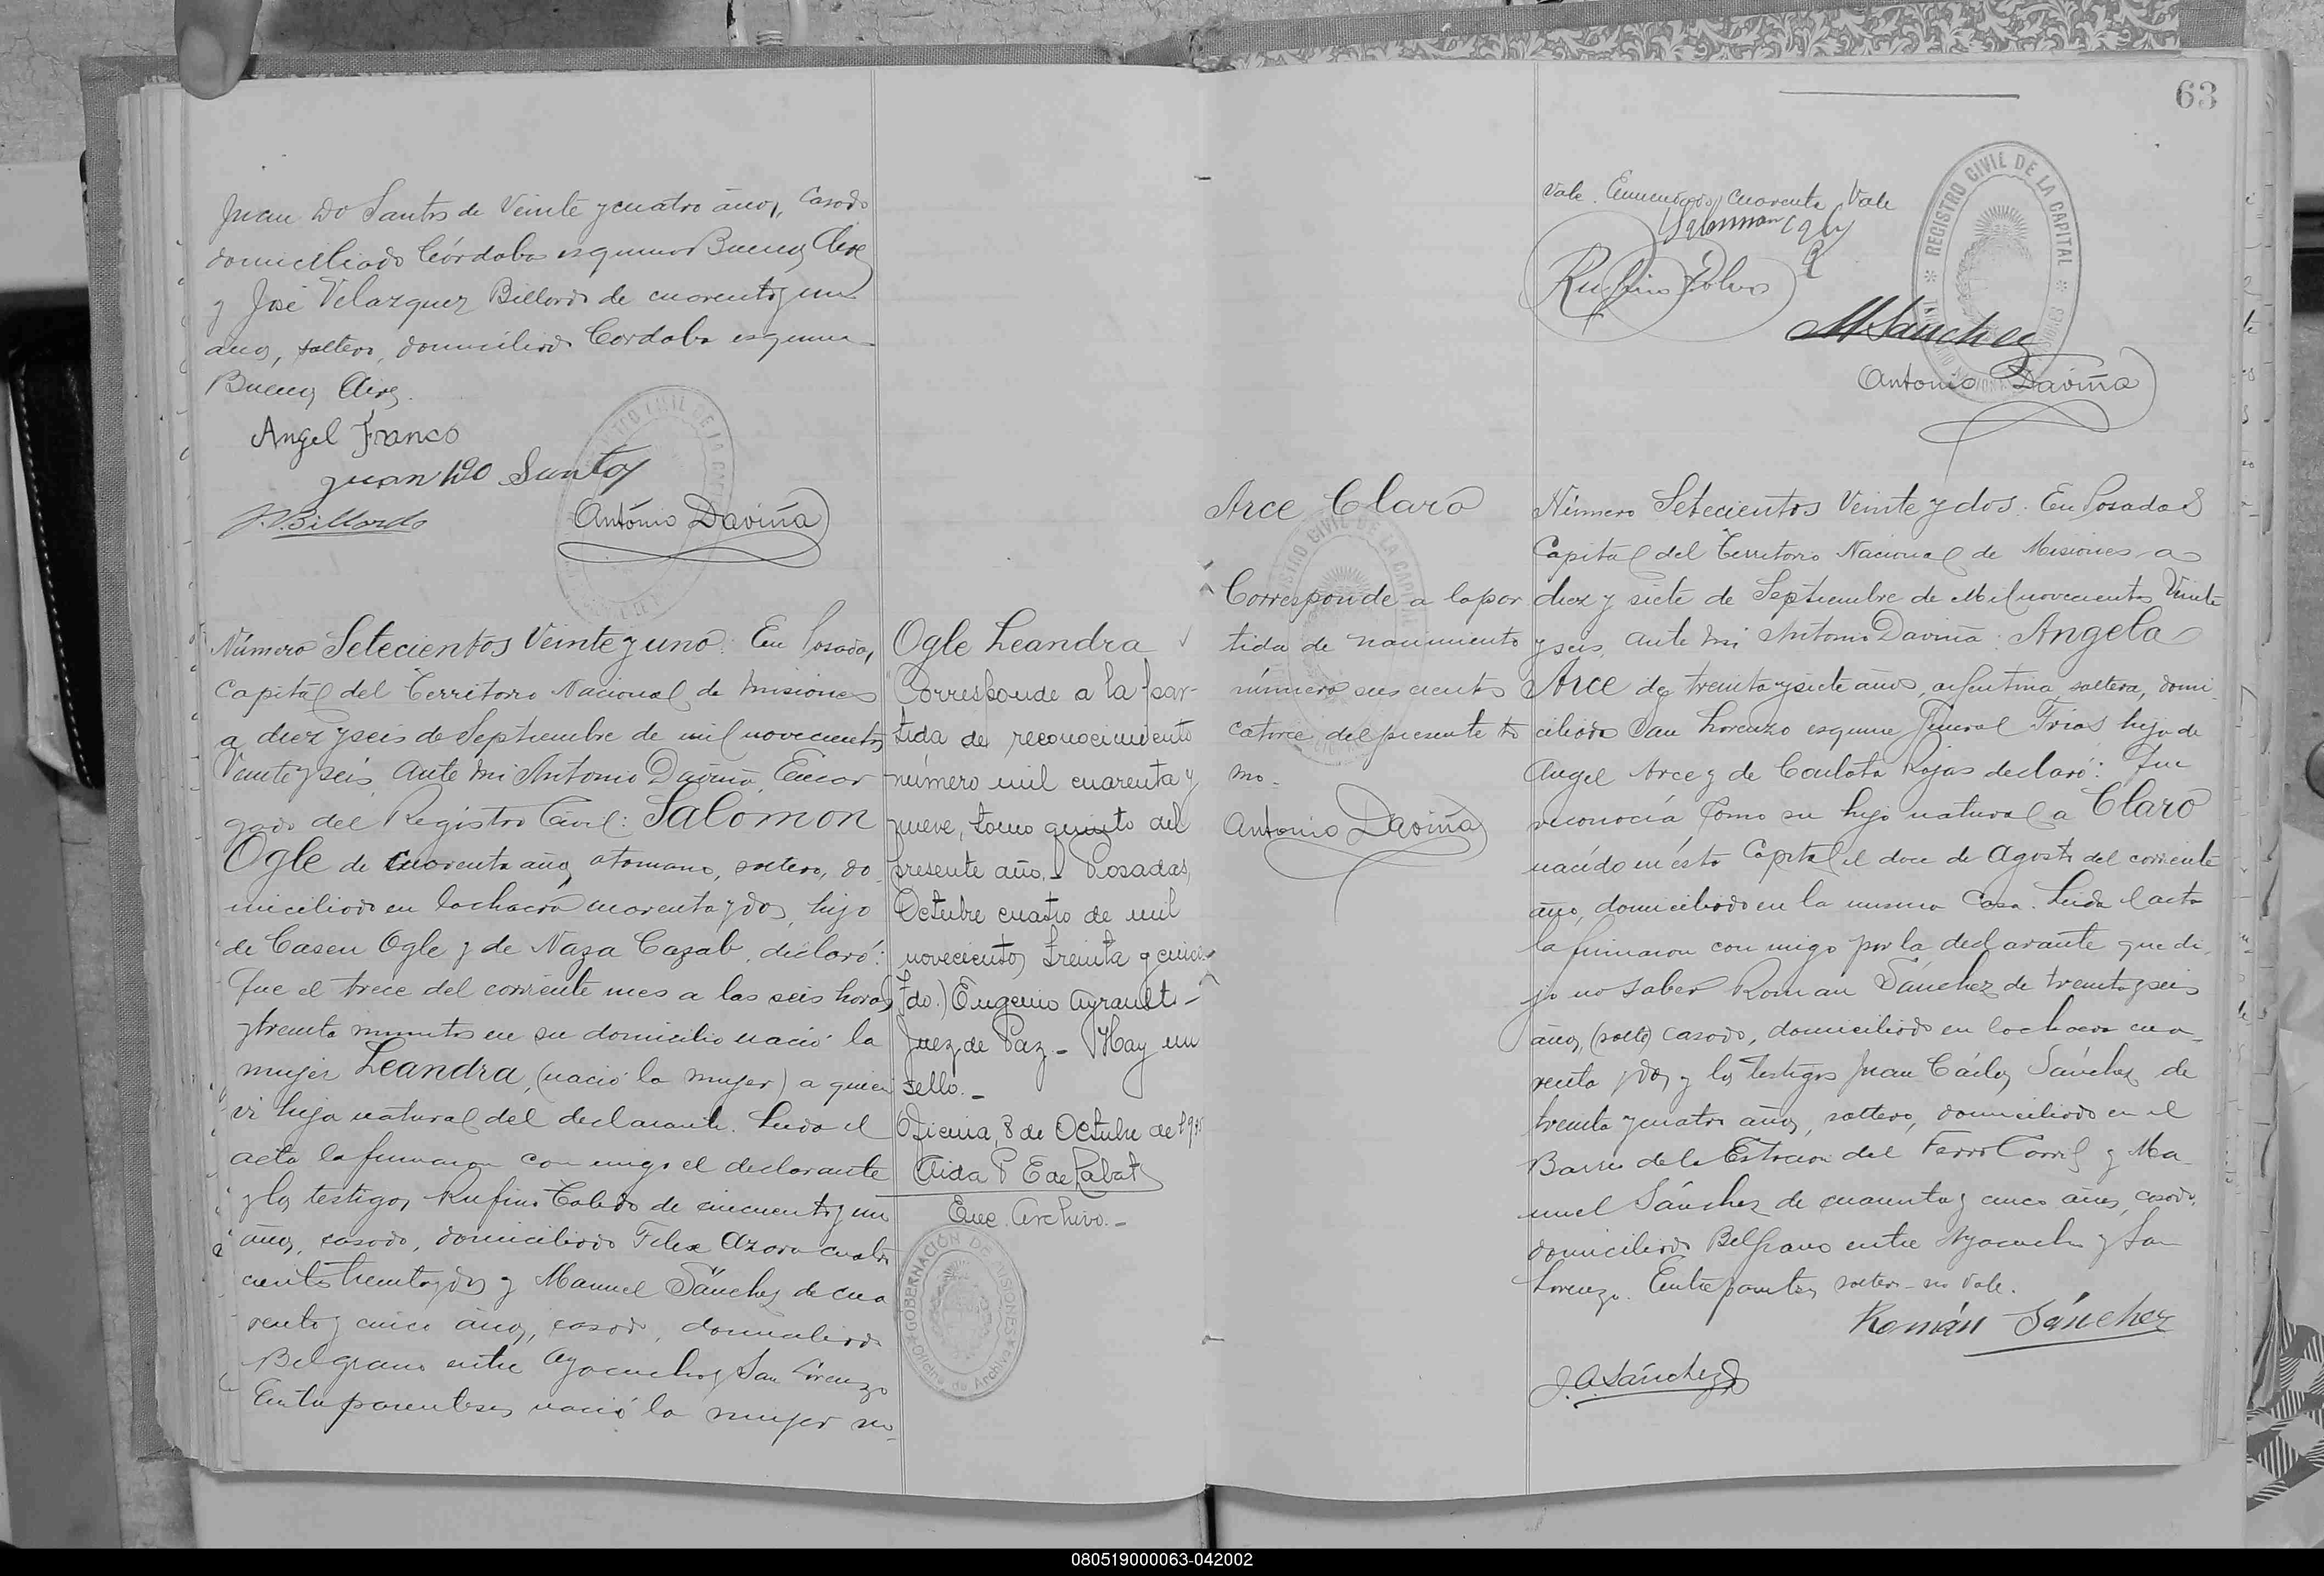 Juan Do Santos de Veinte y cuatro años, casado
domiciliado Córdoba esquina Buenos Aires
y José Velazquez Billordo de cuarenta y un
años, soltero, domiciliado Cordoba esquina
Buenos Aires.
Angel Franco
Juan Do Santos
J. V. Billordo
Antonio Daviña
Número Setecientos Veinte y uno: En Posadas,
Capital del Territorio Nacional de Misiones
a diez y seis de Septiembre de mil novecientos
Veinte y seis, ante mi Antonio Daviña, Encar
gado del Registro Civil: Salomon
Ogle de cuarenta años otomano, soltero, do
miciliado en la chacra cuarenta y dos, hijo
de Casen Ogle y de Naza Cazab, declaró:
Que el trece del corriente mes a las seis horas
y treinta minutos en su domicilio nació la
mujer Leandra, (nació la mujer) a quien
vi hija natural del declarante. Leida el
acta la firmaron con migo el declarante
y los testigos Rufino Toledo de cincuenta y un
años, casado, domiciliado Felix Azara cuatro
cientos treinta y dos y Manuel Sánchez de cua
renta y cinco años, casado, domiciliado
Belgrano entre Ayacucho y San Lorenzo
Entre parentesis nació la mujer no
Ogle Leandra
Corresponde a la par-
tida de reconocimiento
número mil cuarenta y
nueve, tomo quinto del
presente año. - Posadas,
Octubre cuatro de mil
novecientos treinta y cinco
Fdo.) Eugenio Ayrault -
Juez de Paz - Hay un
sello. -
Oficina, 8 de Octubre de 1935
Aida P E de Labat
Enc. Archivo. -
GOBERNACIÓN DE MISIONES
Oficina de Archivo
63
Vale. Enmendado, cuarenta Vale
Salomon Ogly
Rufino Toledo
M Sanchez
Antonio Daviña
REGISTRO CIVIL DE LA CAPITAL
Arce Claro
Corresponde a la par
tida de nacimiento
número seis cientos
catorce del presente to
mo.
Antonio Daviña
Número Setecientos Veinte y dos. En Posadas
Capital del Territorio Nacional de Misiones a
diez y siete de Septiembre de Mil novecientos Veinte
y seis, ante mi Antonio Daviña: Angela
Arce de treinta y siete años, argentina, soltera, domi
ciliada San Lorenzo esquina General Frias hija de
Angel Arce y de Carlota Rojas declaró: Que
reconocía como su hijo natural a Claro
nacido en ésta Capital el doce de Agosto del corriente
año, domiciliado en la misma Casa. Leida el acta
la firmaron con migo por la declarante que di
jo no saber Roman Sánchez de treinta y seis
años, (solte) casado, domiciliado en la chacra cua
renta y dos, y los testigos Juan Cárlos Sánchez de
treinta y cuatro años, soltero, domiciliado en el
Barrio de la Estacion del Ferro Carril y Ma
nuel Sánchez de cuarenta y cinco años, casado,
domiciliado Belgrano entre Ayacucho y San
Lorenzo. Entre parentesis soltero - no Vale.
Román Sánchez
J. C. Sánchez
080519000063-042002